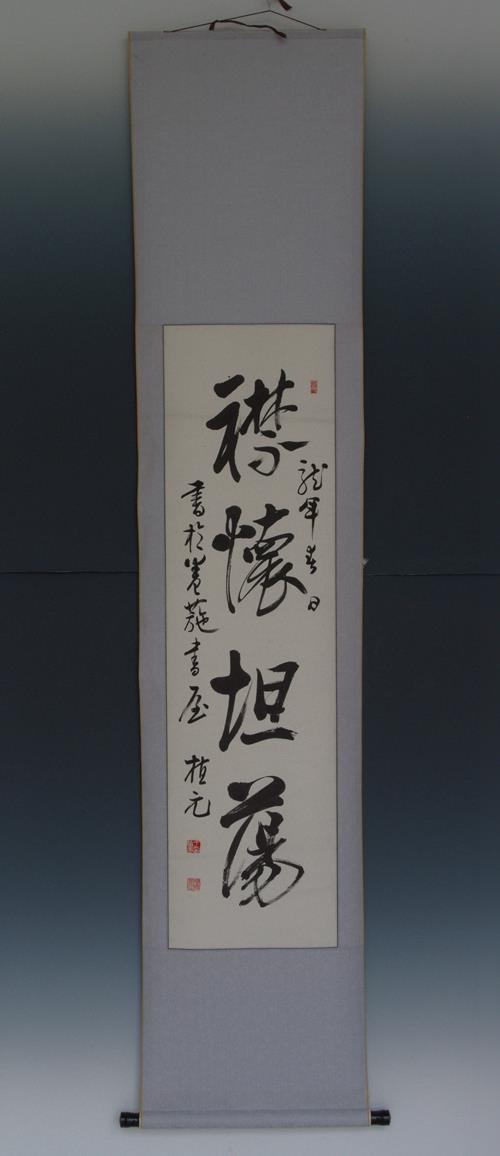 龍年春日
襟懷坦蕩
書於卷葹書屋 植元